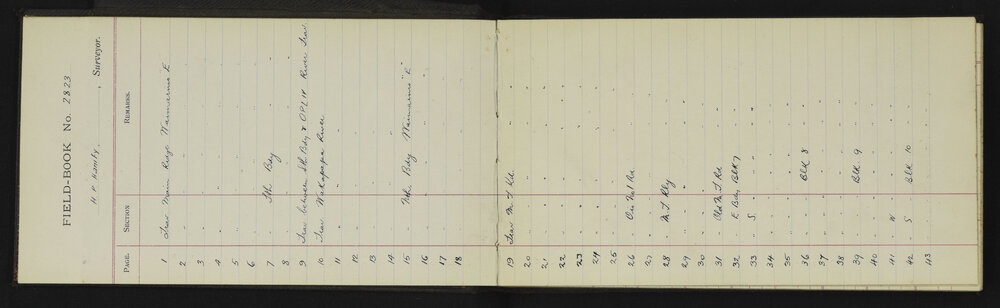 FIELD-BOOK No. 2823
H. P. , Surveyor.
PAGE. SECTION REMARKS.
1 Trav Main Range Waimarino E
2 " " " "
3 " " " "
4 " " " "
5 " " " "
6 " " " "
7 " Sth. Bdy "
8 " " "
9 Trav. between Sth. Bdy & OPL IV River Trav.
10 Trav. Wakapapa River
11 " "
12 " "
13 " "
14 " "
15 " Nth. Bdy Waimarino "E"
16 " " " "
17 " " " "
18 " " " "
19 Trav M T Rd.
20 " " "
21 " " "
22 " " "
23 " " "
24 " " "
25 " " "
26 " Rd
27 " "
28 M. T. Rly
29 "
30 "
31 Old M. T. Rd
32 E Bdy Blk 7
33 S " "
34 " " "
35 " " "
36 " " Blk 8
37 " " "
38 " " "
39 " " Blk. 9
40 " " "
41 N " "
42 S " Blk 10
43